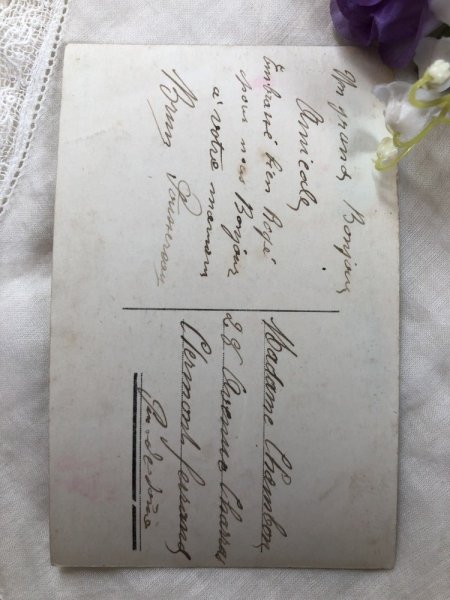 Un grand Bonjour
Amicale
Embrassé bien Rosé
pour nous Bonjour
à votre maman
Madame Chambon
28 Avenue Charras
Clermont Ferrand
Puy de Dôme